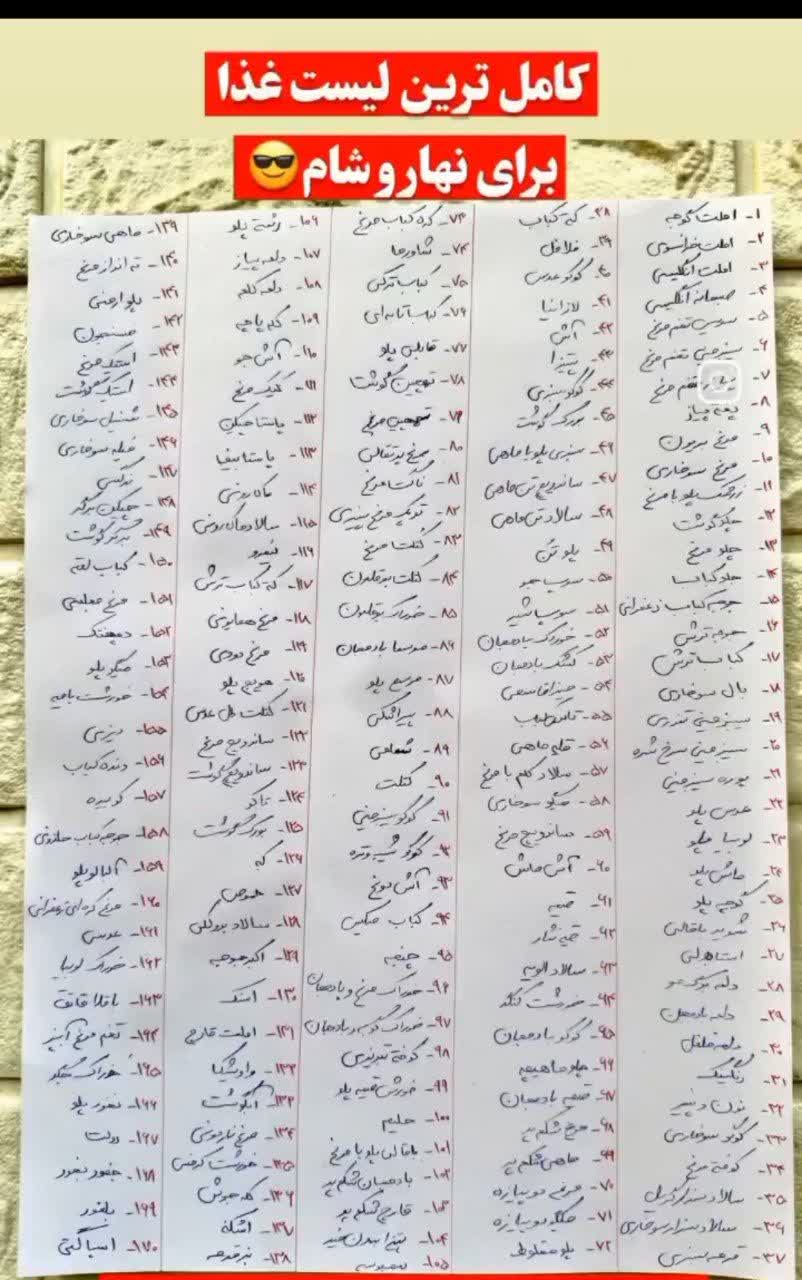 کامل ترین لیست غذا
برای نهار و شام
۱- املت گوجه
۲- املت فرانسوی
۳- املت انگلیسی
۴- صبحانه انگلیسی
۵- سوسیس تخم مرغ
۶- سیب زمینی تخم مرغ
۷- تخم مرغ
۸- پیاز
۹- مرغ بریون
۱۰- مرغ سوخاری
۱۱- زرشک پلو با مرغ
۱۲- چلو گوشت
۱۳- چلو مرغ
۱۴- چلو کباب
۱۵- جوجه کباب زعفرانی
۱۶- جوجه ترش
۱۷- کباب ترش
۱۸- بال سوخاری
۱۹- سیب زمینی تنوری
۲۰- سیب زمینی سرخ شده
۲۱- پوره سیب زمینی
۲۲- عدس پلو
۲۳- لوبیا پلو
۲۴- ماش پلو
۲۵- گوجه پلو
۲۶- شوید باقالی
۲۷- استانبولی
۲۸- دلمه برگ مو
۲۹- دلمه بادمجان
۳۰- دلمه فلفل
۳۱-
۳۲- نون و پنیر
۳۳- کوکو سوخاری
۳۴- کوفته مرغ
۳۵- سالاد سزار گریل
۳۶- سالاد سزار سوخاری
۳۷- قورمه سبزی
۳۸- کباب
۳۹- فلافل
۴۰- کوکو عدس
۴۱- لازانیا
۴۲- آش
۴۳- پیتزا
۴۴- کوکو سبزی
۴۵- بورک گوشت
۴۶- سبزی پلو با ماهی
۴۷- ساندویچ تن ماهی
۴۸- سالاد تن ماهی
۴۹- پلو تن
۵۰- سوپ جو
۵۱- سوپ شیر
۵۲- خوراک بادمجان
۵۳- کشک بادمجان
۵۴- میرزا قاسمی
۵۵-
۵۶- قلیه ماهی
۵۷- سالاد کلم با مرغ
۵۸- میگو سوخاری
۵۹- ساندویچ مرغ
۶۰- آش ماش
۶۱- قیمه
۶۲- قیمه نثار
۶۳- سالاد الویه
۶۴- خورشت کنگر
۶۵- کوکو بادمجان
۶۶- چلو ماهیچه
۶۷- قیمه بادمجان
۶۸- مرغ شکم پر
۶۹- ماهی شکم پر
۷۰- مرغ دوپیازه
۷۱- میگو دوپیازه
۷۲- پلو مخلوط
۷۳- کباب مرغ
۷۴- شاورما
۷۵- کباب ترکی
۷۶- کباب تابه ای
۷۷- قابلی پلو
۷۸- ته چین گوشت
۷۹- ته چین مرغ
۸۰- مرغ پرتقالی
۸۱- ناگت مرغ
۸۲- مرغ پنیری
۸۳- کتلت مرغ
۸۴- کتلت بوقلمون
۸۵- خوراک بوقلمون
۸۶- بادمجان
۸۷- مرصع پلو
۸۸- پیراشکی
۸۹- شامی
۹۰- کتلت
۹۱- کوکو سیب زمینی
۹۲- کوکو
۹۳- آش دوغ
۹۴- کباب چکین
۹۵- چنجه
۹۶- خوراک مرغ و بادمجان
۹۷- خوراک گوجه و بادمجان
۹۸- کوفته تبریزی
۹۹- خورش قیمه پلو
۱۰۰- حلیم
۱۰۱- باقالی پلو با مرغ
۱۰۲- بادمجان شکم پر
۱۰۳- قارچ شکم پر
۱۰۴- پیتزا بدون خمیر
۱۰۵- سمبوسه
۱۰۶- رشته پلو
۱۰۷- دلمه پیاز
۱۰۸- دلمه کلم
۱۰۹- کله پاچه
۱۱۰- آش جو
۱۱۱- کیک مرغ
۱۱۲- پاستا چیکن
۱۱۳- پاستا بیف
۱۱۴- ماکارونی
۱۱۵- سالاد ماکارونی
۱۱۶- نیمرو
۱۱۷- کباب ترش
۱۱۸- مرغ همایونی
۱۱۹- مرغ
۱۲۰- هویج پلو
۱۲۱- کتلت گل عدس
۱۲۲- ساندویچ مرغ
۱۲۳- ساندویچ گوشت
۱۲۴- تاکو
۱۲۵- بورک گوشت
۱۲۶- کبه
۱۲۷- حموص
۱۲۸- سالاد بروکلی
۱۲۹- اکبر جوجه
۱۳۰-
۱۳۱- املت قارچ
۱۳۲- واویشکا
۱۳۳- آبگوشت
۱۳۴- مرغ ناردونی
۱۳۵- خورشت کرفس
۱۳۶- کله جوش
۱۳۷- اشکنه
۱۳۸-
۱۳۹- ماهی سوخاری
۱۴۰- ته انداز مرغ
۱۴۱- پلو ارمنی
۱۴۲-
۱۴۳- استیک مرغ
۱۴۴- استیک گوشت
۱۴۵- شنیسل سوخاری
۱۴۶- فیله سوخاری
۱۴۷- نرگسی
۱۴۸- چیکن برگر
۱۴۹- برگر گوشت
۱۵۰- کباب لقمه
۱۵۱- مرغ مجلسی
۱۵۲- دمپختک
۱۵۳- میگو پلو
۱۵۴- خورشت بامیه
۱۵۵- دیزی
۱۵۶- دنده کباب
۱۵۷- کوبیده
۱۵۸- جوجه کباب
۱۵۹- آلبالو پلو
۱۶۰- مرغ کره ای زعفرانی
۱۶۱- عدسی
۱۶۲- خوراک لوبیا
۱۶۳- باقلا قاتق
۱۶۴- تخم مرغ آبپز
۱۶۵- خوراک میگو
۱۶۶- نخود پلو
۱۶۷- دولت
۱۶۸- جغور بغور
۱۶۹-
۱۷۰- اسپاگتی